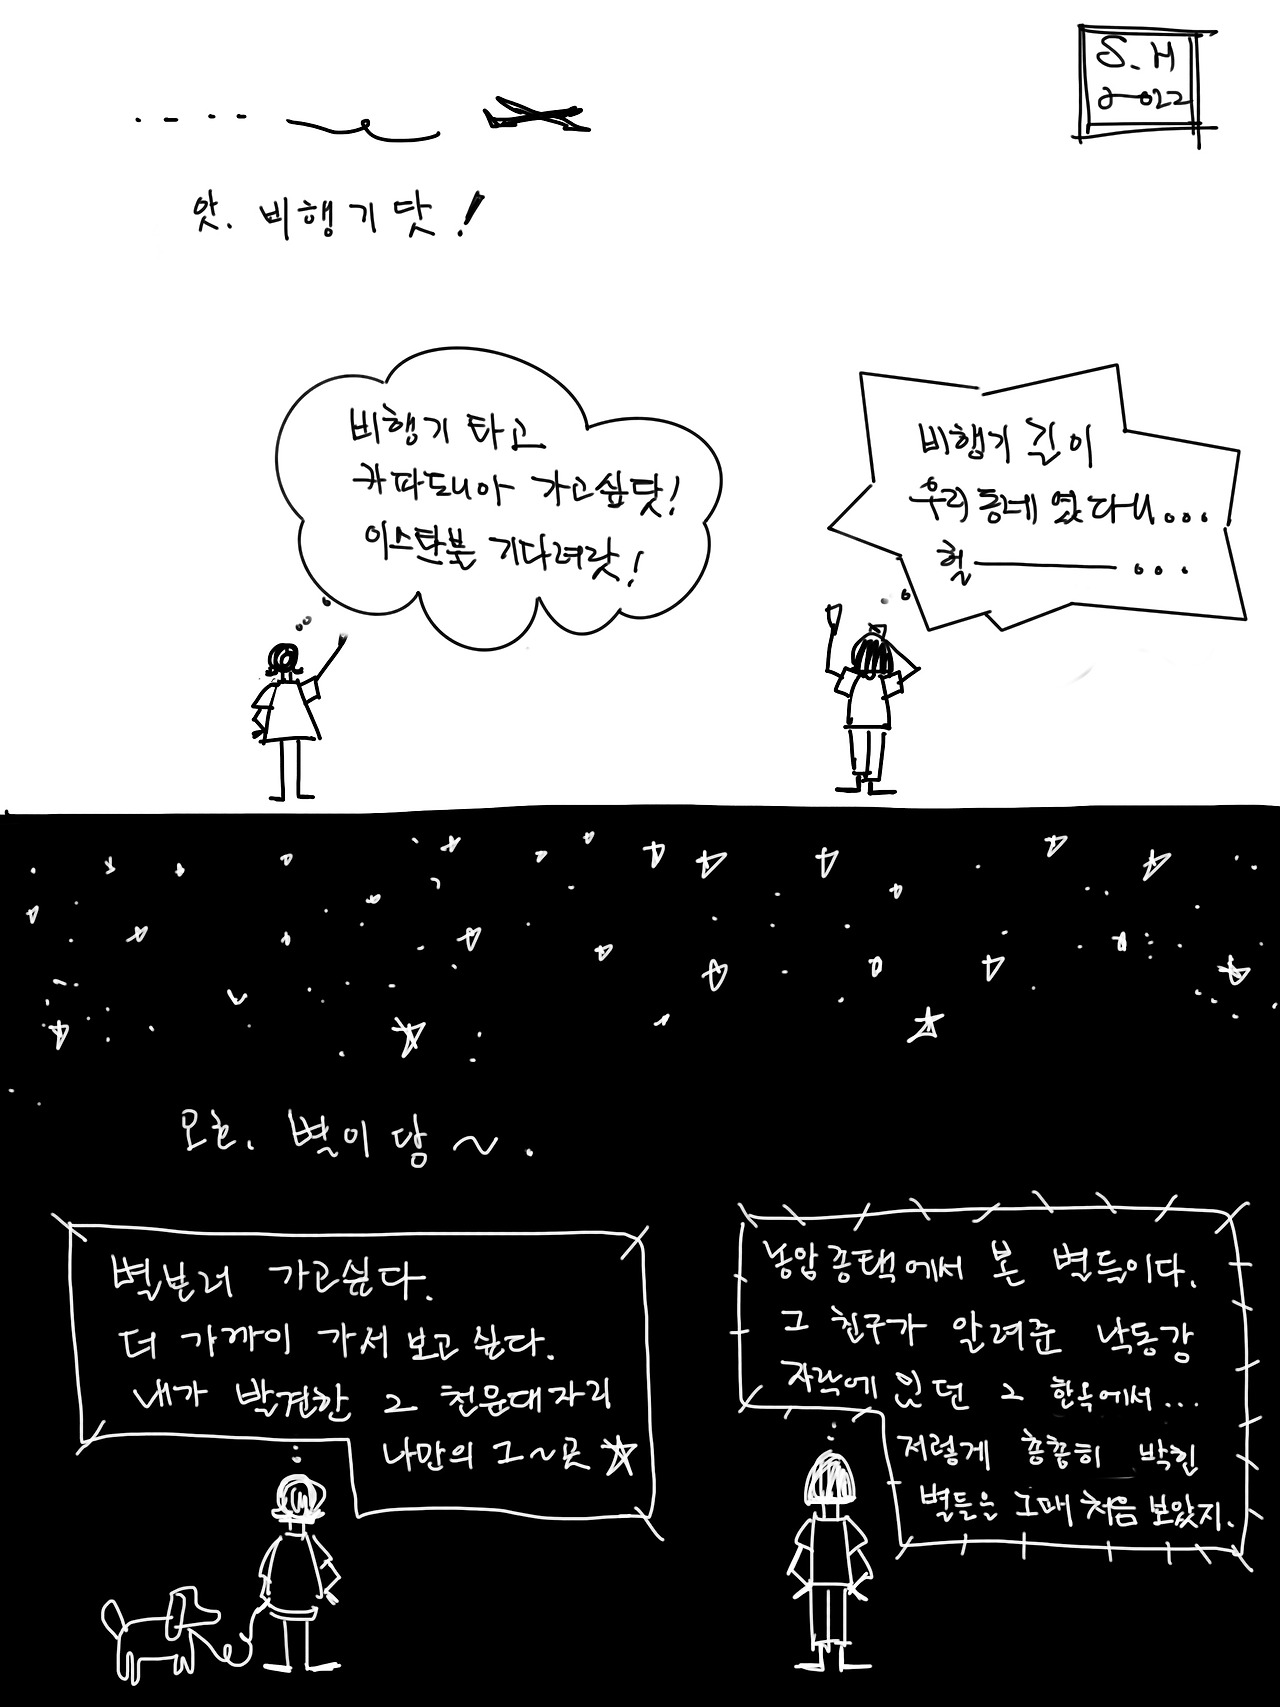 S.H
2022
앗. 비행기닷!
비행기 타고
카파도니아 가고싶닷!
이스탄불 기다려랏!
비행기 길이
우리 동네 였다니...
헐 ── ...
오호. 별이당~.
별보러 가고싶다.
더 가까이 가서 보고 싶다.
내가 발견한 그 천문대자리
나만의 그~곳
농암종택에서 본 별들이다.
그 친구가 알려준 낙동강
자락에 있던 그 한옥에서...
저렇게 총총히 박힌
별들은 그때 처음 보았지.